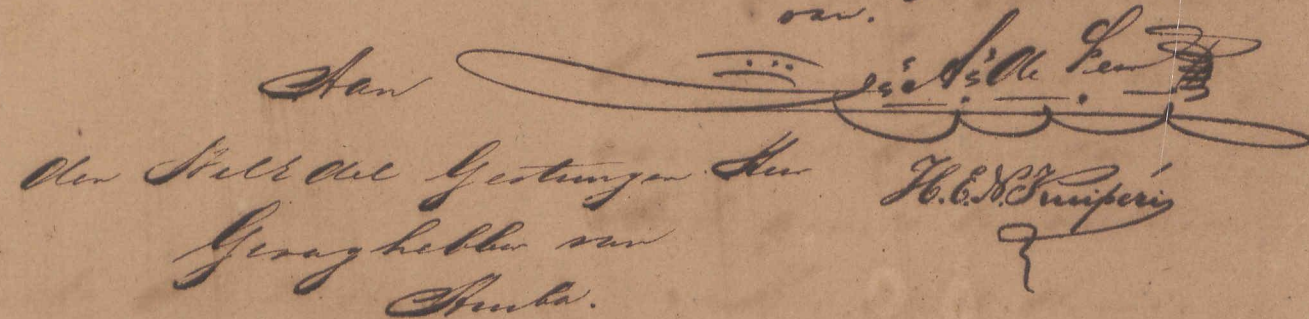 van.
Aan
den WelEdel Gestrengen Heer
Gezaghebber van
Aruba.
H.E.N.